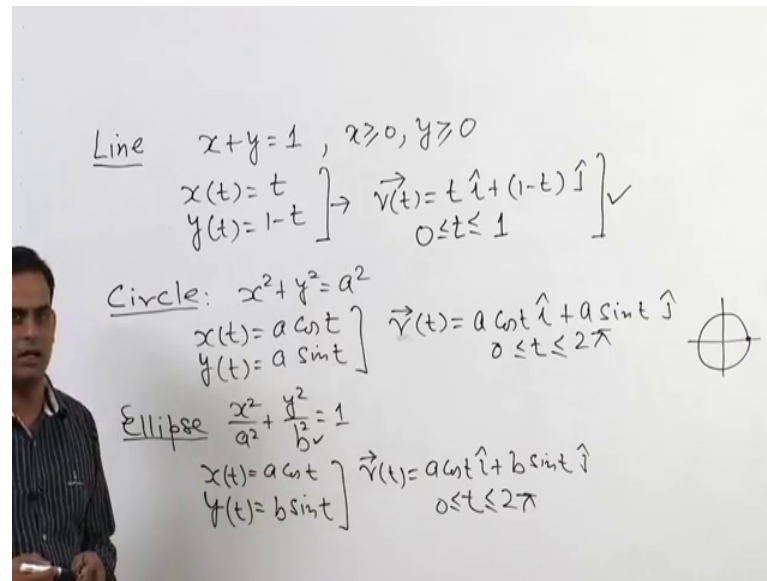 Line x+y=1 , x≥0, y≥0
x(t)= t
y(t)= 1-t ] → r⃗(t)= t î + (1-t) ĵ ] ✓
0≤t≤ 1
Circle: x²+y²=a²
x(t)= a cos t
y(t)= a sin t ] r⃗(t)= a cos t î + a sin t ĵ
0 ≤ t ≤ 2π
Ellipse x²/a² + y²/b² = 1
x(t)= a cos t
y(t)= b sin t ] r⃗(t)= a cos t î + b sin t ĵ
0≤t≤2π